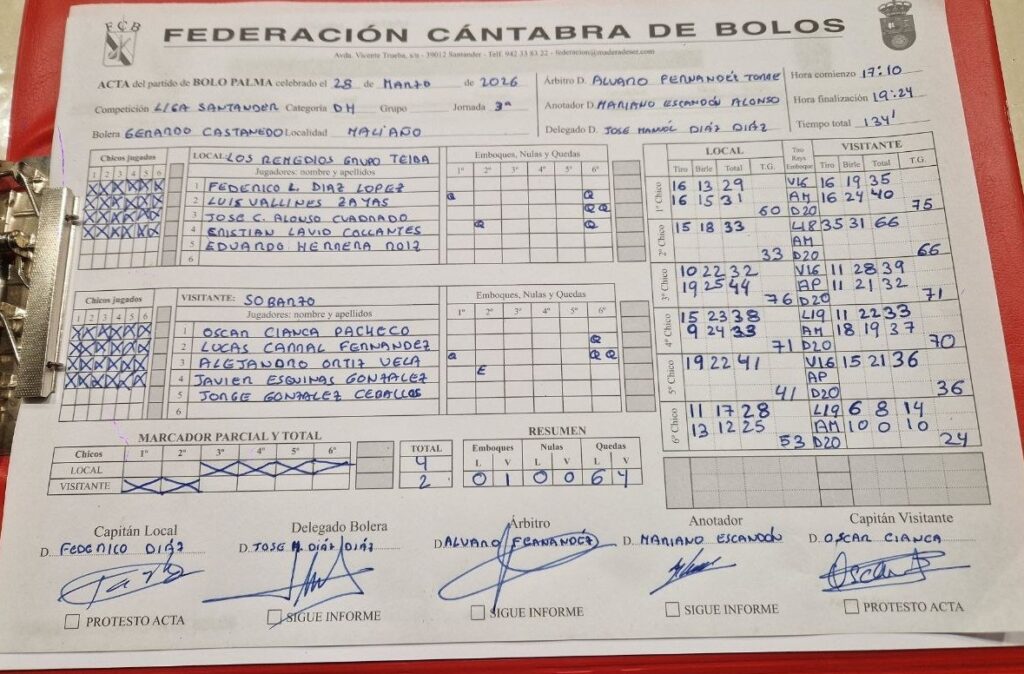 FCB
FEDERACIÓN CÁNTABRA DE BOLOS
Avda. Vicente Trueba, s/n - 39012 Santander - Telf. 942 33 83 22 - federacion@maderadeser.com
ACTA del partido de BOLO PALMA celebrado el 28 de MARZO de 2026
Competición LIGA SANTANDER Categoría DH Grupo Jornada 3ª
Bolera GERARDO CASTANEDO Localidad MALIAÑO
Árbitro D. ALVARO FERNANDEZ TORRE
Anotador D. MARIANO ESCANDÓN ALONSO
Delegado D. JOSE MANUEL DIÁZ DIÁZ
Hora comienzo 17:10
Hora finalización 19:24
Tiempo total 134'
Chicos jugados
1 2 3 4 5 6
LOCAL: LOS REMEDIOS GRUPO TEIBA
Jugadores: nombre y apellidos
1 FEDERICO L. DIAZ LOPEZ
2 LUIS VALLINES ZAYAS
3 JOSE C. ALONSO CUADRADO
4 CRISTIAN LAVID COLLANTES
5 EDUARDO HERRERA ROIZ
6
Emboques, Nulas y Quedas
1º 2º 3º 4º 5º 6º
Q Q
Q Q
Q Q
Chicos jugados
1 2 3 4 5 6
VISITANTE: SOBARZO
Jugadores: nombre y apellidos
1 OSCAR CIANCA PACHECO
2 LUCAS CARRAL FERNANDEZ
3 ALEJANDRO ORTIZ VELA
4 JAVIER ESQUINAS GONZALEZ
5 JORGE GONZALEZ CEBALLOS
6
Emboques, Nulas y Quedas
1º 2º 3º 4º 5º 6º
Q
Q Q Q
E
LOCAL
Tiro Birle Total T.G.
Tiro Raya Emboque
VISITANTE
Tiro Birle Total T.G.
1º Chico
16 13 29 V16 16 19 35
16 15 31 AM 16 24 40
60 D20 75
2º Chico
15 18 33 L18 35 31 66
AM
33 D20 66
3º Chico
10 22 32 V16 11 28 39
19 25 44 AP 11 21 32
76 D20 71
4º Chico
15 23 38 L19 11 22 33
9 24 33 AM 18 19 37
71 D20 70
5º Chico
19 22 41 V16 15 21 36
AP
41 D20 36
6º Chico
11 17 28 L19 6 8 14
13 12 25 AM 10 0 10
53 D20 24
MARCADOR PARCIAL Y TOTAL
Chicos 1º 2º 3º 4º 5º 6º
LOCAL
VISITANTE
TOTAL
4
2
RESUMEN
Emboques Nulas Quedas
L V L V L V
0 1 0 0 6 4
Capitán Local
D. FEDERICO DIÁZ
PROTESTO ACTA
Delegado Bolera
D. JOSE M. DIÁZ DIÁZ
SIGUE INFORME
Árbitro
D. ALVARO FERNANDEZ
SIGUE INFORME
Anotador
D. MARIANO ESCANDÓN
SIGUE INFORME
Capitán Visitante
D. OSCAR CIANCA
PROTESTO ACTA